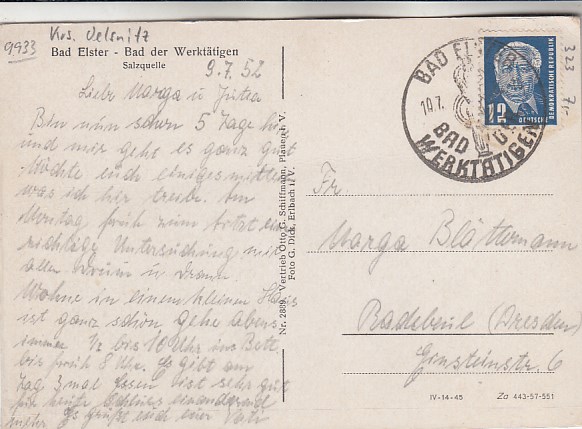 Krs. Oelsnitz
9933
Bad Elster - Bad der Werktätigen
Salzquelle
9.7.52
Liebe Marga u Jutta
Bin nun schon 5 Tage hi
und mir geht es ganz gut
Möchte euch einiges mitteilen
was ich hier treibe. Am
Montag früh zum Arzt
richtige Untersuchung mit
allen Drum u Dran
Wohne in einem kleinen Haus
ist ganz schön gehe abens
immer 1/2 bis 10 Uhr ins Bett
bis früh 8 Uhr. Es gibt am
Tag 3 mal Essen ist sehr gut
für heute Schluss
mehr Es grüßt euch euer Vati
Nr. 2889 Vertrieb Otto G. Schiffmann, Plauen i. V.
Foto G. Dick, Erlbach i. V.
BAD ELSTER
10.7.
BAD DER
WERKTÄTIGEN
DEUTSCHE DEMOKRATISCHE REPUBLIK
12
DEUTSCHE
323
7,-
Fr
Marga Blättermann
Radebeul (Dresden)
Einsteinstr. 6
IV-14-45 Za 443-57-551